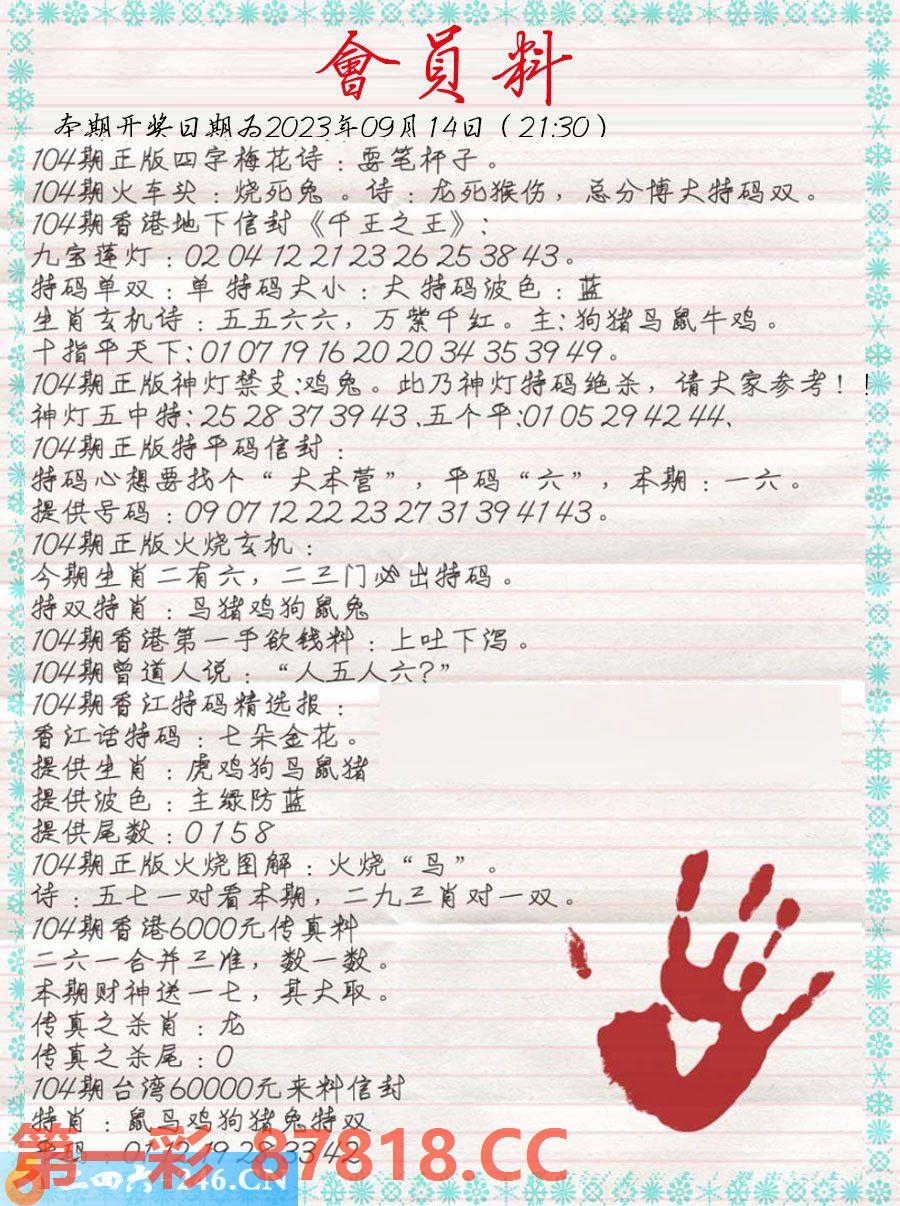 會員料
本期开奖日期为2023年09月14日（21:30）
104期正版四字梅花诗：耍笔杆子。
104期火车头：烧死兔。诗：龙死猴伤，总分博大特码双。
104期香港地下信封《千王之王》：
九宝莲灯：02 04 12 21 23 26 25 38 43。
特码单双：单 特码大小：大 特码波色：蓝
生肖玄机诗：五五六六，万紫千红。主：狗猪马鼠牛鸡。
十指平天下：01 07 19 16 20 20 34 35 39 49。
104期正版神灯禁支：鸡兔。此乃神灯特码绝杀，请大家参考！！
神灯五中特：25 28 37 39 43、五个平：01 05 29 42 44、
104期正版特平码信封：
特码心想要找个“大本营”，平码“六”，本期：一六。
提供号码：09 07 12 22 23 27 31 39 41 43。
104期正版火烧玄机：
今期生肖二有六，二三门必出特码。
特双特肖：马猪鸡狗鼠兔
104期香港第一手欲钱料：上吐下泻。
104期曾道人说：“人五人六？”
104期香江特码精选报：
香江话特码：七朵金花。
提供生肖：虎鸡狗马鼠猪
提供波色：主绿防蓝
提供尾数：0 1 5 8
104期正版火烧图解：火烧“马”。
诗：五七一对看本期，二九三肖对一双。
104期香港6000元传真料
二六一合并三准，数一数。
本期财神送一七，其大取。
传真之杀肖：龙
传真之杀尾：0
104期台湾60000元来料信封
特肖：鼠马鸡狗猪兔特双
平码：01 12 19 28 33 42
第一彩 87818.CC
二四六 246.CN